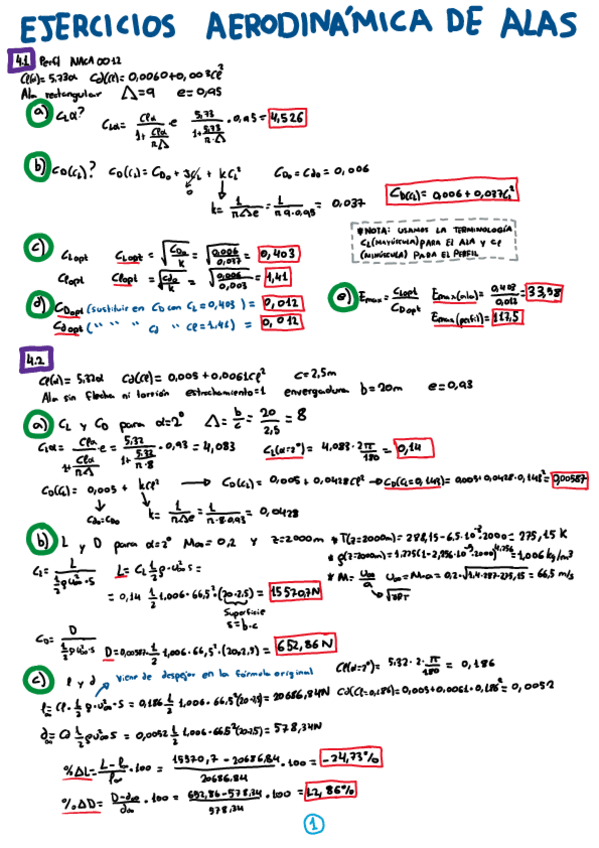 EJERCICIOS AERODINÁMICA DE ALAS
4.1 Perfil NACA 0012
Cl(α)= 5.73α Cd(Cl)= 0,0060+0,003Cl²
Ala rectangular Λ=9 e=0,95
a) CLα?
CLα= Clα / (1+ Clα/πΛ) · e 5,73 / (1+ 5,73/π·Λ) · 0,95 = 4,526
b) CD(CL)? CD(CL)= CD0 + kCL² CD0= Cd0= 0,006
k= 1/πΛe = 1/π·9·0,95 = 0,037 CD(CL)= 0,006+0,037CL²
*NOTA: USAMOS LA TERMINOLOGÍA
CL(MAYÚSCULA) PARA EL ALA Y Cl
(MINÚSCULA) PARA EL PERFIL
c) CLopt CLopt= √(CD0/K) = √(0,006/0,037) = 0,403
Clopt Clopt= √(Cd0/k) = √(0,006/0,003) = 1,41
d) CDopt (sustituir en CD con CL=0,403) = 0,012
Cdopt (" " " Cd " Cl=1,41) = 0,012
e) Emax= CLopt/CDopt Emax(ala)= 0,403/0,012 = 33,58
Emax(perfil)= 117,5
4.2
Cl(α)= 5.32α Cd(Cl)= 0,005+0,0061Cl² c=2,5m
Ala sin flecha ni torsión estrechamiento=1 envergadura b=20m e=0,93
a) CL y CD para α=2° Λ= b/c = 20/2,5 = 8
CLα= Clα / (1+ Clα/πΛ) · e = 5,32 / (1+ 5,32/π·8) · 0,93 = 4,083 CL(α=2°)= 4,083· 2π/180 = 0,14
CD(CL)= 0,005 + kCL² → CD(CL)= 0,005+0,0428CL² → CD(CL=0,143)= 0,005+0,0428·0,143²= 0,00587
Cd0=CD0 k= 1/πΛe = 1/π·8·0,93 = 0,0428
b) L y D para α=2° M∞=0,2 y z=2000m * T(z=2000m)= 288,15-6.5·10⁻³·2000= 275,15 K
* ρ(z=2000m)= 1.225(1-2,256·10⁻⁵·2000)^4,256=1,006 kg/m³
CL= L / (½ρu∞²·S) L= CL ½ρ·u∞²·S = * M= u∞/a u∞= M∞·a= 0,2·√1.4·287·275,15 = 66,5 m/s
√γRT
= 0,14 ½ 1,006·66,5²·(20·2.5)= 15570,7N
Superficie
S=b·c
CD= D / (½ρu∞²·S) D= 0,00587·½ 1,006·66,5²·(20·2,5)= 652,86N
c) l y d Viene de despejar en la fórmula original Cl(α=2°)= 5.32·2· π/180 = 0,186
l∞= Cl·½ρ·u∞²·S = 0,186½ 1,006·66,5²(20·2.5)= 20686,84N Cd(Cl=0,186)= 0,005+0,0061·0,186²= 0,0052
d∞= Cd½ρu∞²·S = 0,0052½ 1,006·66,5²(20·2.5)= 578,34N
%ΔL= (L-l∞)/l∞ ·100 = (15570,7-20686.84)/20686.84 ·100 = -24,73%
%ΔD= (D-d∞)/d∞ ·100 = (652,86-578,34)/578,34 ·100 = 12,86%
1